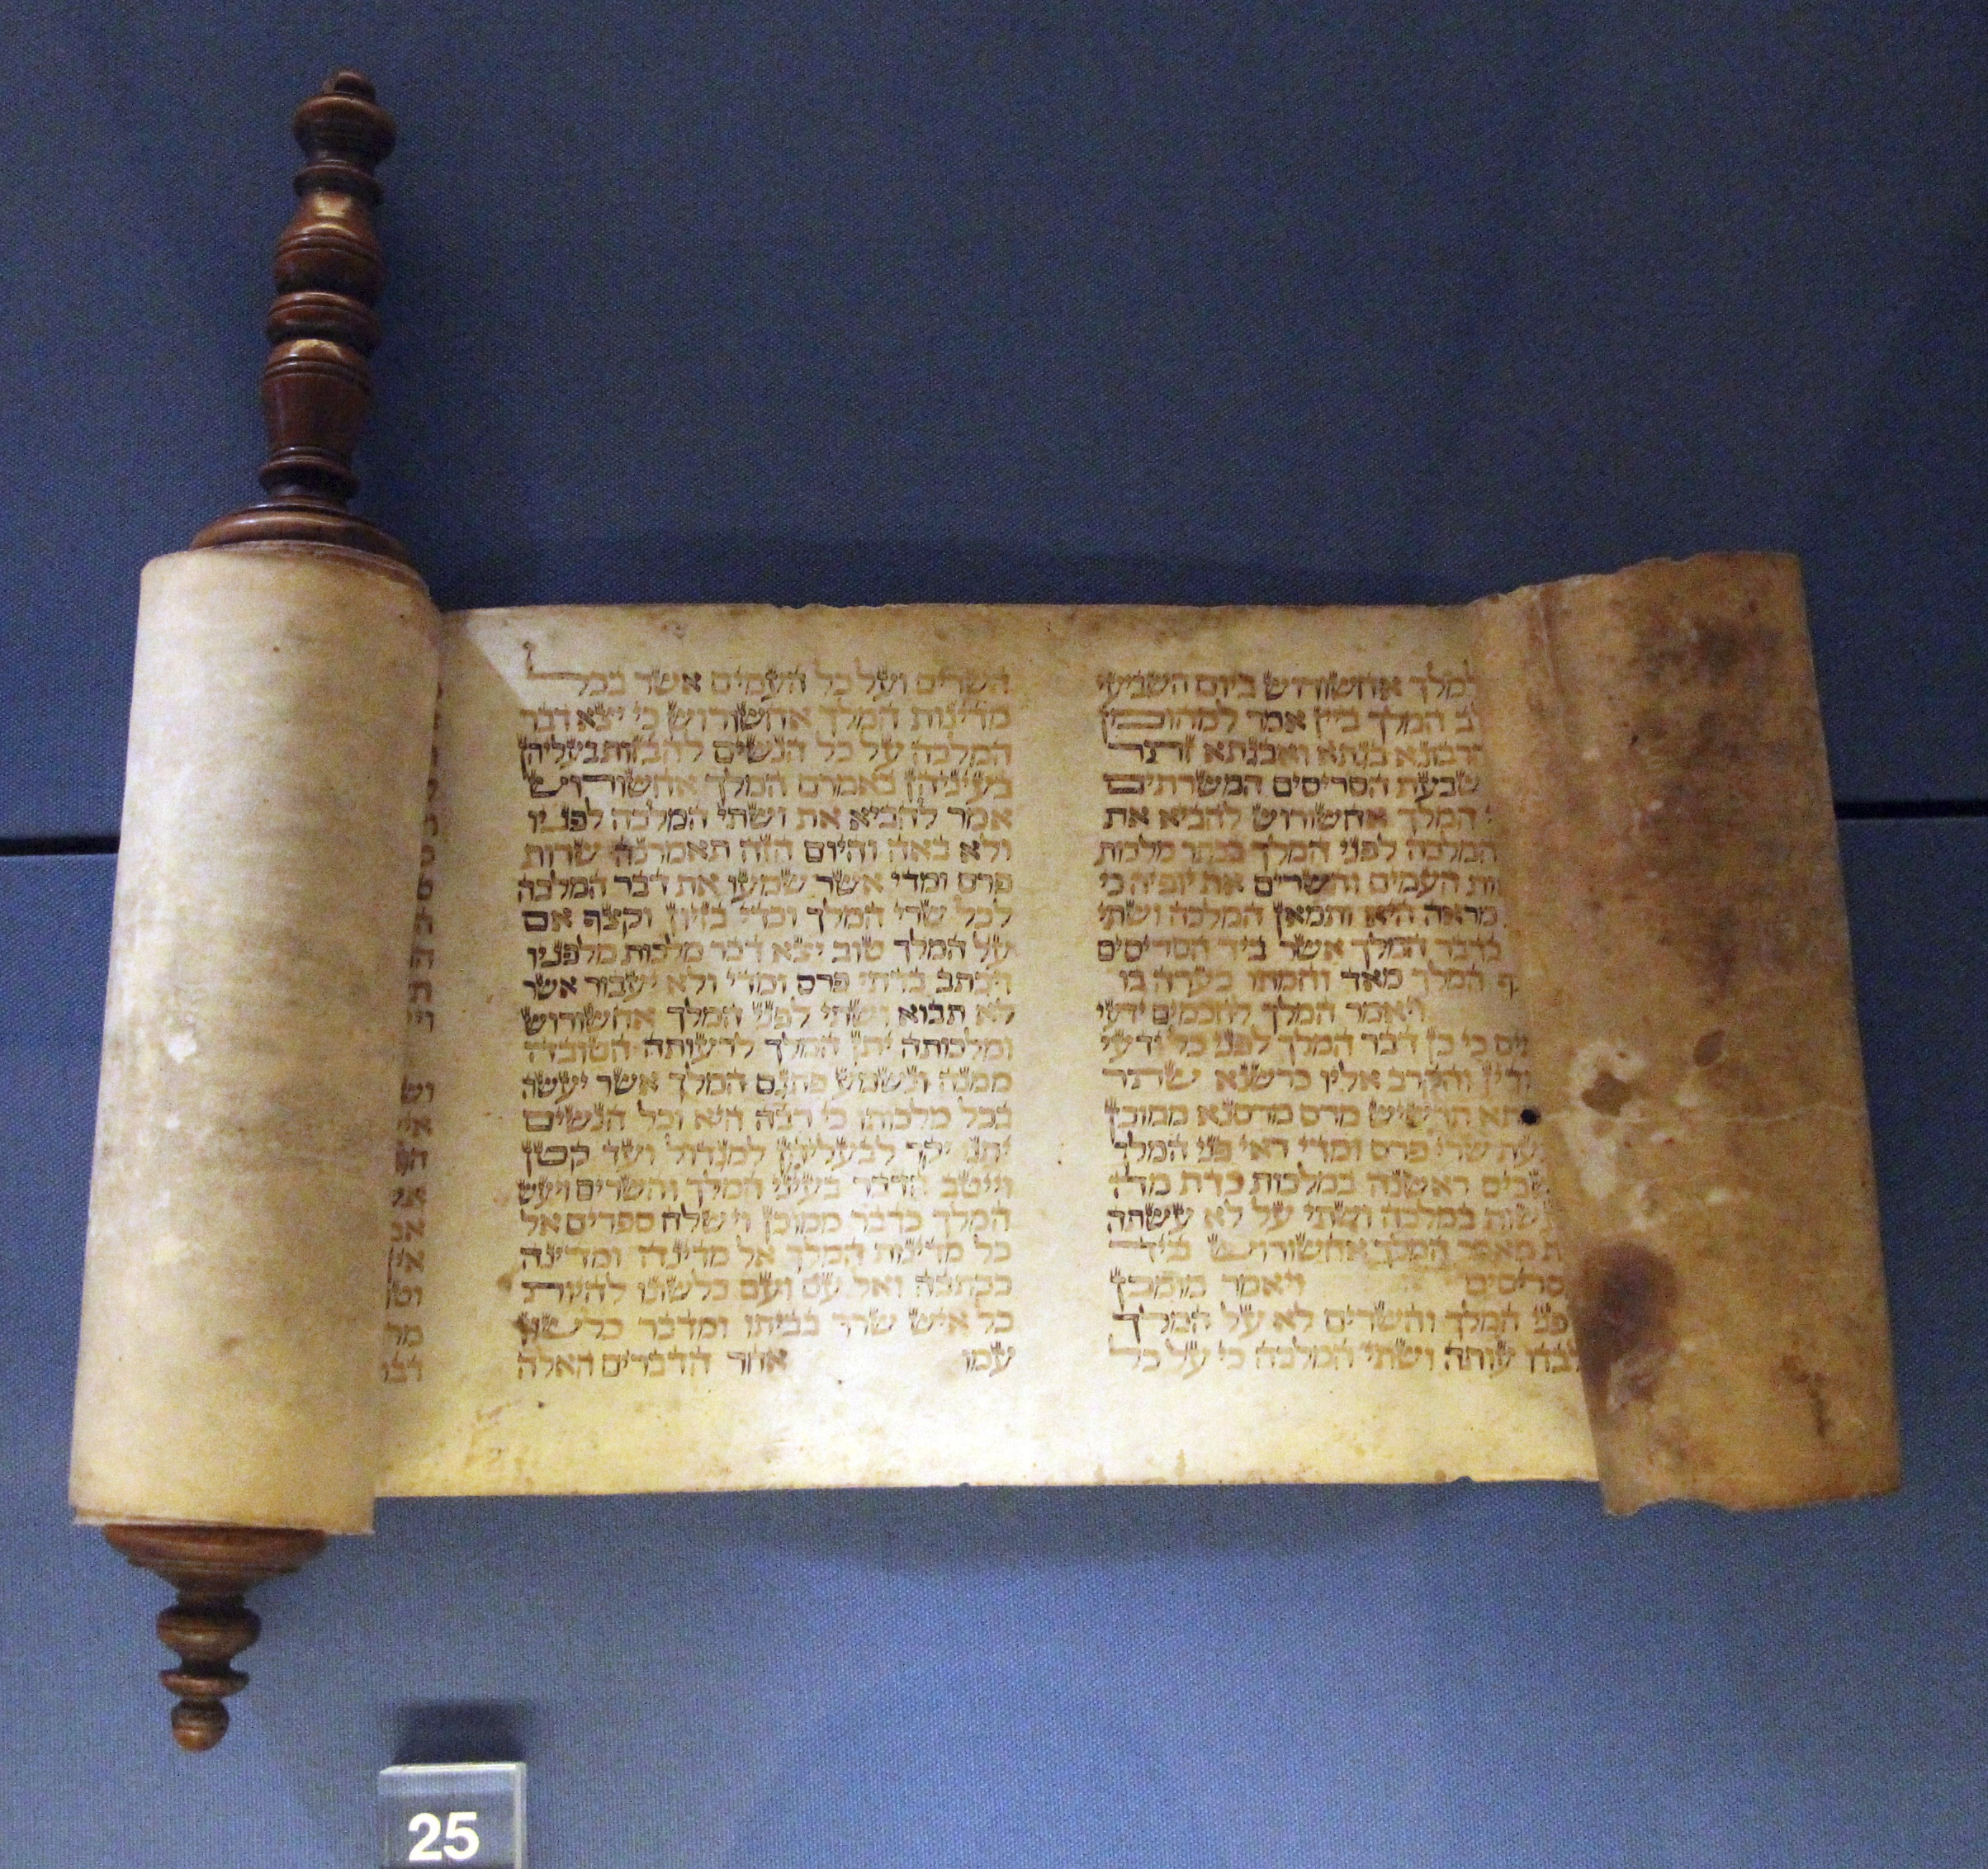 למלך אחשורוש ביום השביעי
ב המלך ביין אמר למהומן
חרבונא בגתא ואבגתא זתר
שבעת הסריסים המשרתים
המלך אחשורוש להביא את
המלכה לפני המלך בכתר מלכות
ות העמים והשרים את יופיה כי
מראה היא ותמאן המלכה ושתי
בדבר המלך אשר ביד הסריסים
ף המלך מאד וחמתו בערה בו
ויאמר המלך לחכמים ידעי
ים כי כן דבר המלך לפני כל ידעי
ודין והקרב אליו כרשנא שתר
תא תרשיש מרס מרסנא ממוכן
עת שרי פרס ומדי ראי פני המלך
שבים ראשנה במלכות כדת מה
לעשות במלכה ושתי על לא עשתה
ת מאמר המלך אחשורוש ביד
סריסים ויאמר מומכן
פני המלך והשרים לא על המלך
לבדו עותה ושתי המלכה כי על כל
השרים ועל כל העמים אשר בכל
מדינות המלך אחשורוש כי יצא דבר
המלכה על כל הנשים להבזות בעליהן
בעיניהן באמרם המלך אחשורוש
אמר להביא את ושתי המלכה לפניו
ולא באה והיום הזה תאמרנה שרות
פרס ומדי אשר שמעו את דבר המלכה
לכל שרי המלך וכדי בזיון וקצף אם
על המלך טוב יצא דבר מלכות מלפניו
ויכתב בדתי פרס ומדי ולא יעבור אשר
לא תבוא ושתי לפני המלך אחשורוש
ומלכותה יתן המלך לרעותה הטובה
ממנה ונשמע פתגם המלך אשר יעשה
בכל מלכותו כי רבה היא וכל הנשים
יתנו יקר לבעליהן למגדול ועד קטן
וייטב הדבר בעיני המלך והשרים ויעש
המלך כדבר ממוכן וישלח ספרים אל
כל מדינות המלך אל מדינה ומדינה
ככתבה ואל עם ועם כלשונו להיות
כל איש שרר בביתו ומדבר כלשון
עמו אחר הדברים האלה
25